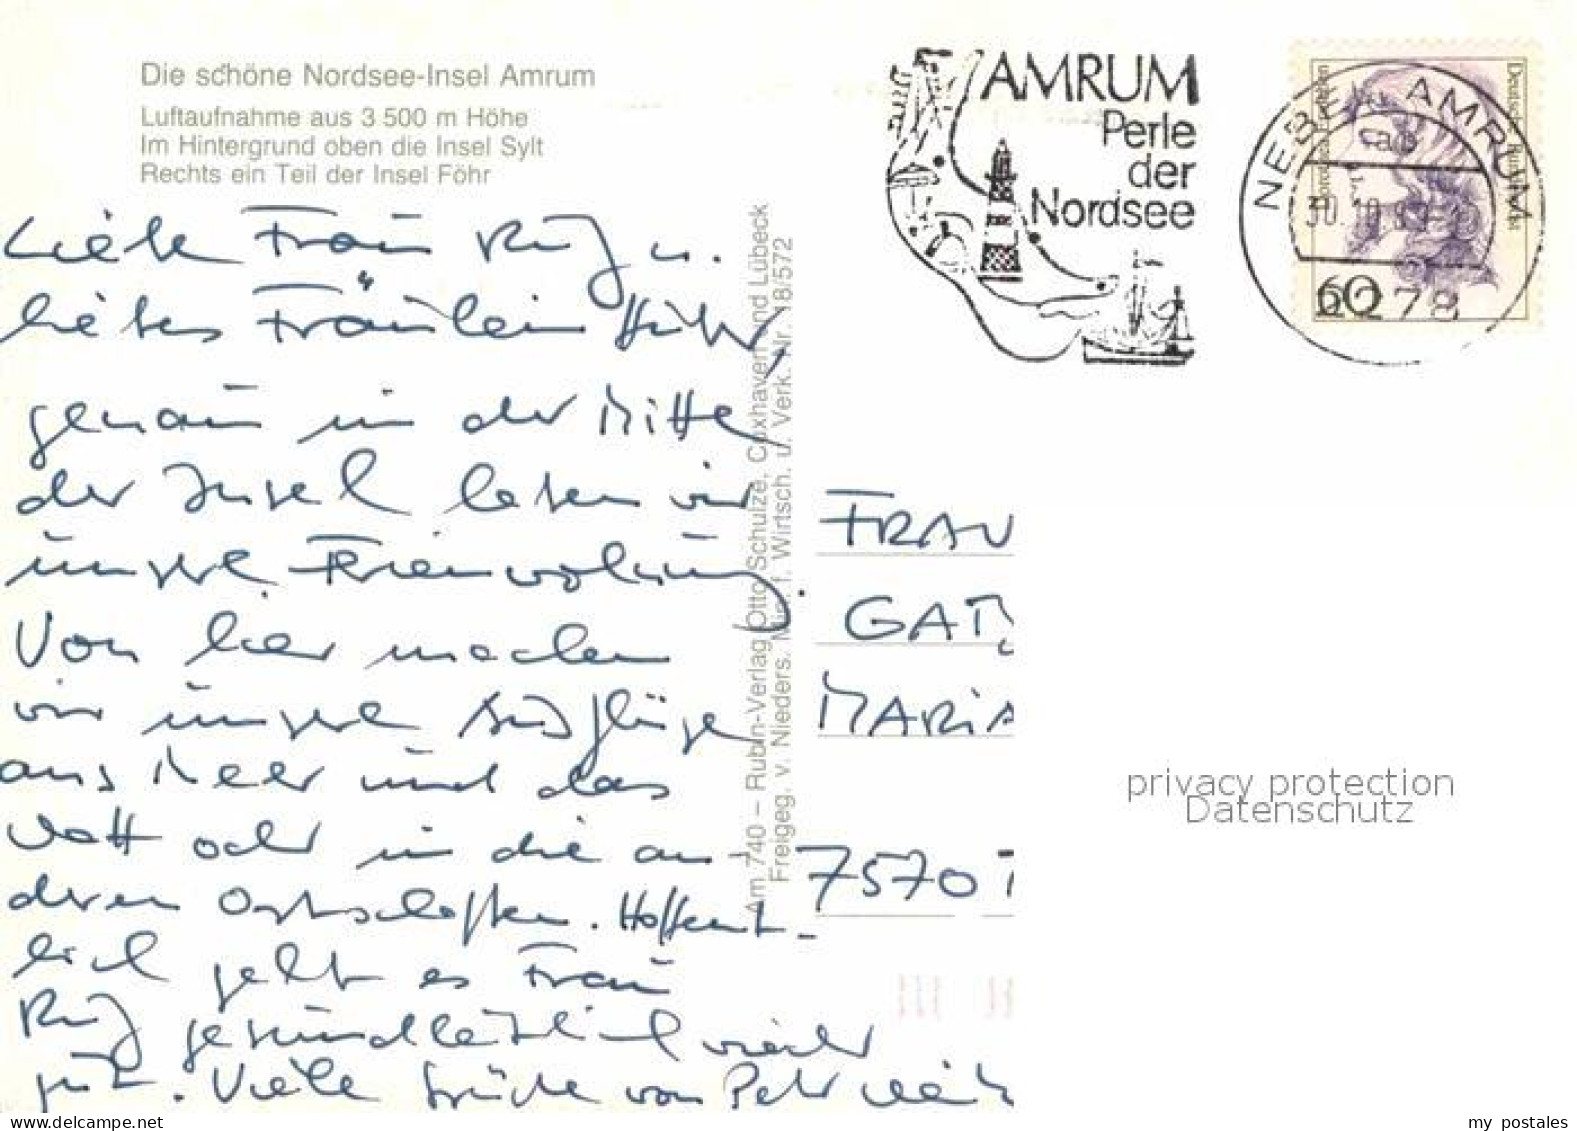 Die schöne Nordsee-Insel Amrum
Luftaufnahme aus 3 500 m Höhe
Im Hintergrund oben die Insel Sylt
Rechts ein Teil der Insel Föhr
AMRUM
Perle
der
Nordsee
NEBEL, AMRUM
30.10.
2278
60
Deutsche Bundespost
Liebe Frau Ruf u.
liebes Fräulein
genau in der Mitte
der Insel leben wir
unsere Ferienwohnung.
Von hier machen
wir unsere Ausflüge
ans Meer und das
Watt oder in die an-
deren Ortschaften. Hoffent-
lich geht es Frau
Ruf gesundheitlich wieder
gut. Viele Grüße von Peter
Am 740 – Rubin-Verlag Otto Schulze, Cuxhaven und Lübeck
Freigeg. v. Nieders. Min. f. Wirtsch. u. Verk. Nr. 18/572
FRAU
MARIA
7570
privacy protection
Datenschutz
my postales